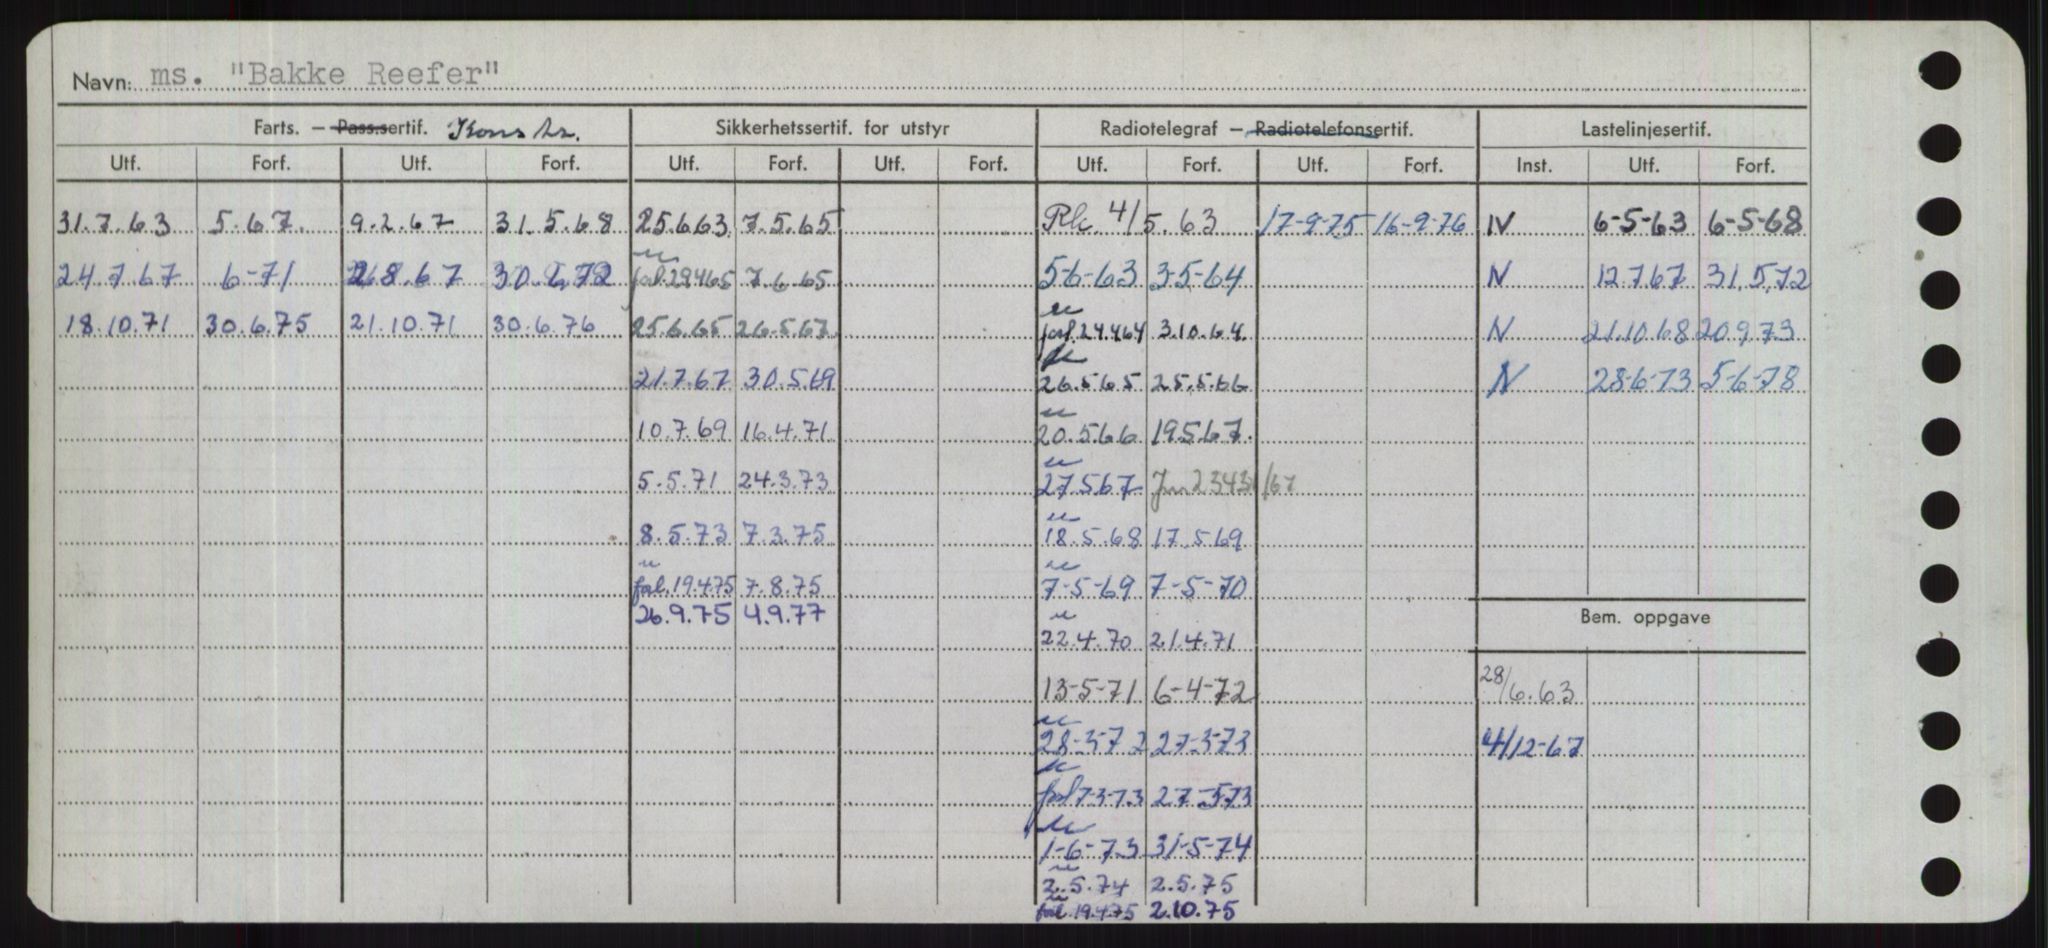 Navn: ms. "Bakke Reefer"
Farts. — Pass.sertif. Konstr. Sikkerhetssertif. for utstyr Radiotelegraf — Radiotelefonsertif. Lastelinjesertif.
Utf. Forf. Utf. Forf. Utf. Forf. Utf. Forf. Utf. Forf. Utf. Forf. Inst. Utf. Forf.
31.7.63 5.67. 9.2.67 31.5.68 25.6.63. 7.5.65 Rk 4/5.63 17-9-75 16-9-76 N 6-5-63 6-5-68
24.7.67 6-71 8.67 30.6.72 forl. 29.4.65 7.6.65 5-6-63 3-5-64 N 12.7.67 31.5.72
18.10.71 30.6.75 21.10.71 30.6.76 25.6.65 26.5.67. forl. 24.4.64 3.10.64. N 21.10.68 20.9.73
21.7.67 30.5.69 26.5.65 25.5.66 N 28-6-73 5-6-78
10.7.69 16.4.71 20.5.66 19.5.67.
5.5.71 24.3.73 27.5.67 /67
8.5.73 7.3.75 18.5.68 17.5.69
forl. 19.4.75 7.8.75 7-5-69 7-5-70
26.9.75 4.9.77
Bem. oppgave
22.4.70 21.4.71
13-5-71 6-4-72 28/6.63
28-3-72 27-3-73 4/12-67
forl 7-3-73 27-5-73
1-6-73 31-5-74
2.5.74 2.5.75
forl. 19.4.75 2.10.75